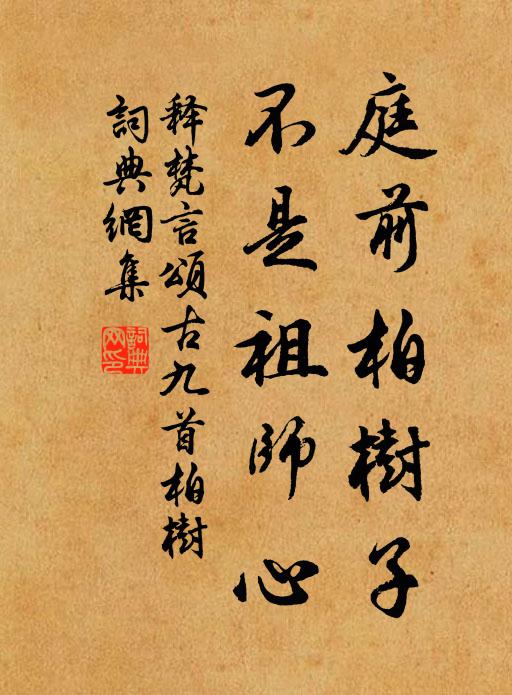 庭前柏樹子
不是祖師心
释梵言頌古九首柏樹
詞典網集
詞典
网印